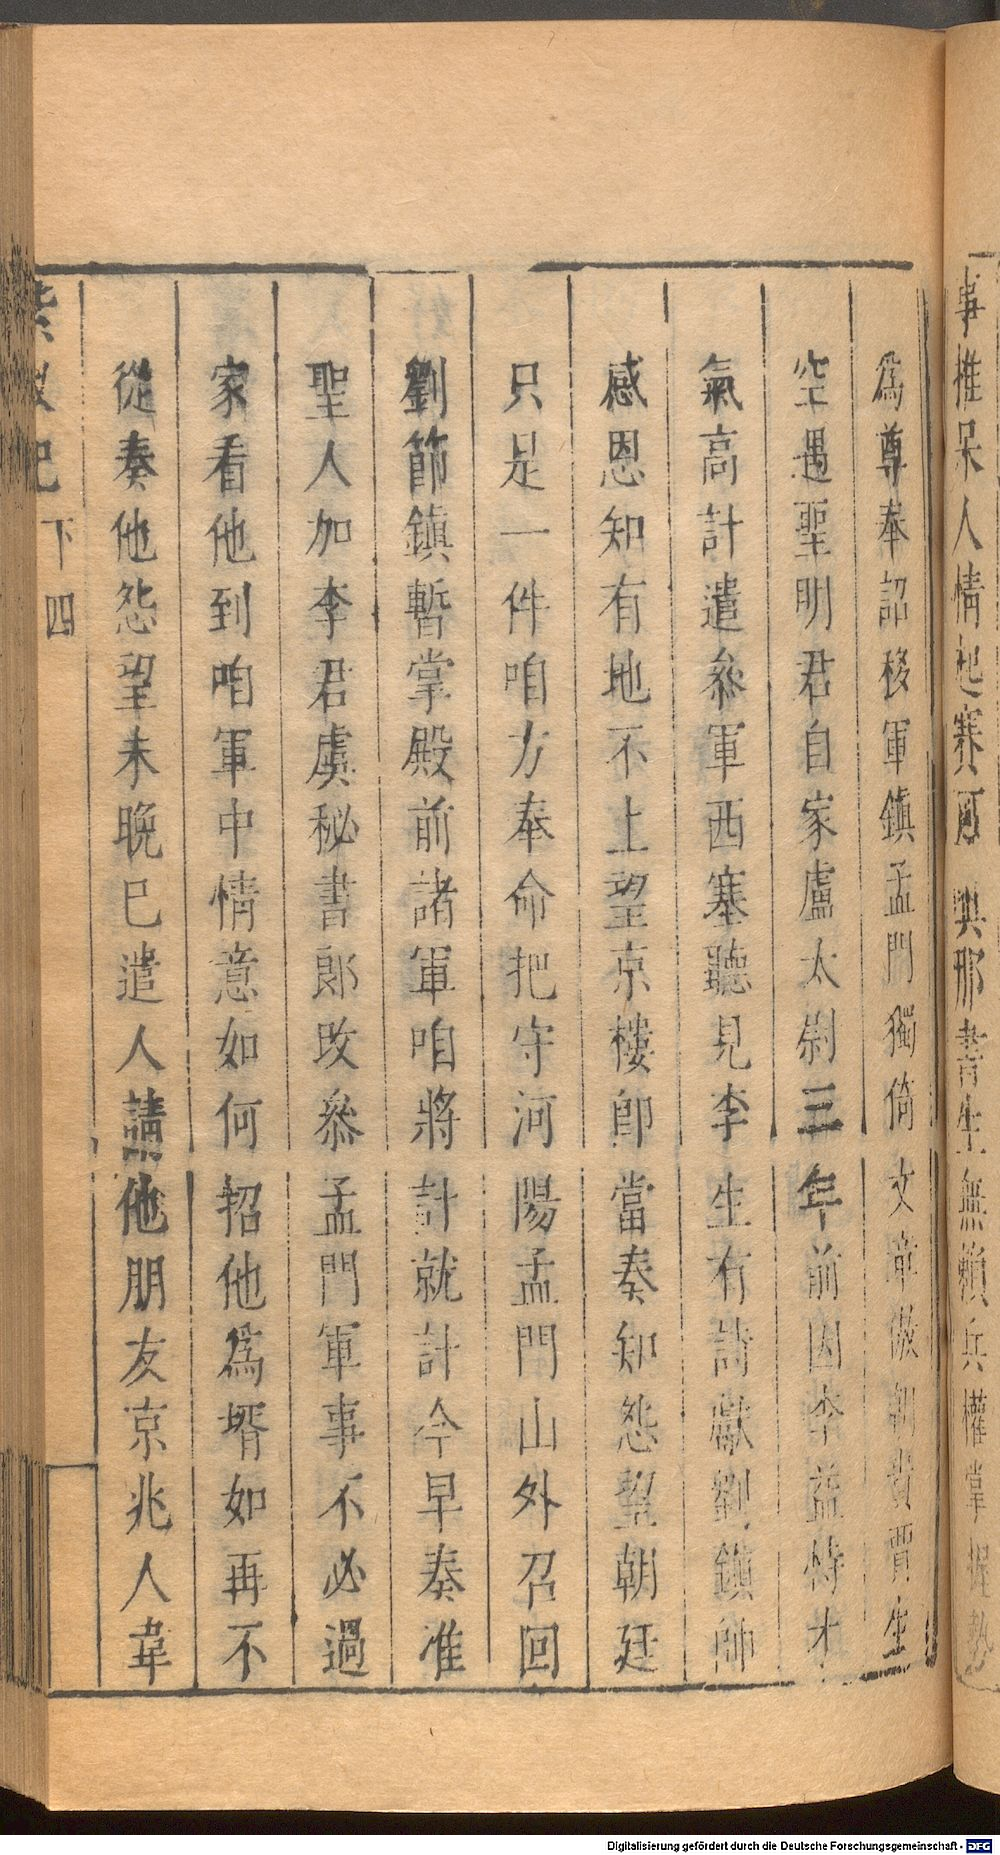 事推呆人情起賽可 與那書生無賴兵權掌握勢
爲尊奉詔移軍鎮孟門獨倚文章傲朝貴賈生
空遇聖明君自家盧太尉三年前因李益恃才
氣高計遣叅軍西塞聽見李生有詩獻劉鎮帥
感恩知有地不上望京樓卽當奏知怨望朝廷
只是一件咱方奉命把守河陽孟門山外召回
劉節鎮暫掌殿前諸軍咱將計就計今早奏准
聖人加李君虞秘書郎改叅孟門軍事不必過
家看他到咱軍中情意如何招他爲壻如再不
從奏他怨望未晚巳遣人請他朋友京兆人韋
紫釵記 下 四
Digitalisierung gefördert durch die Deutsche Forschungsgemeinschaft - DFG